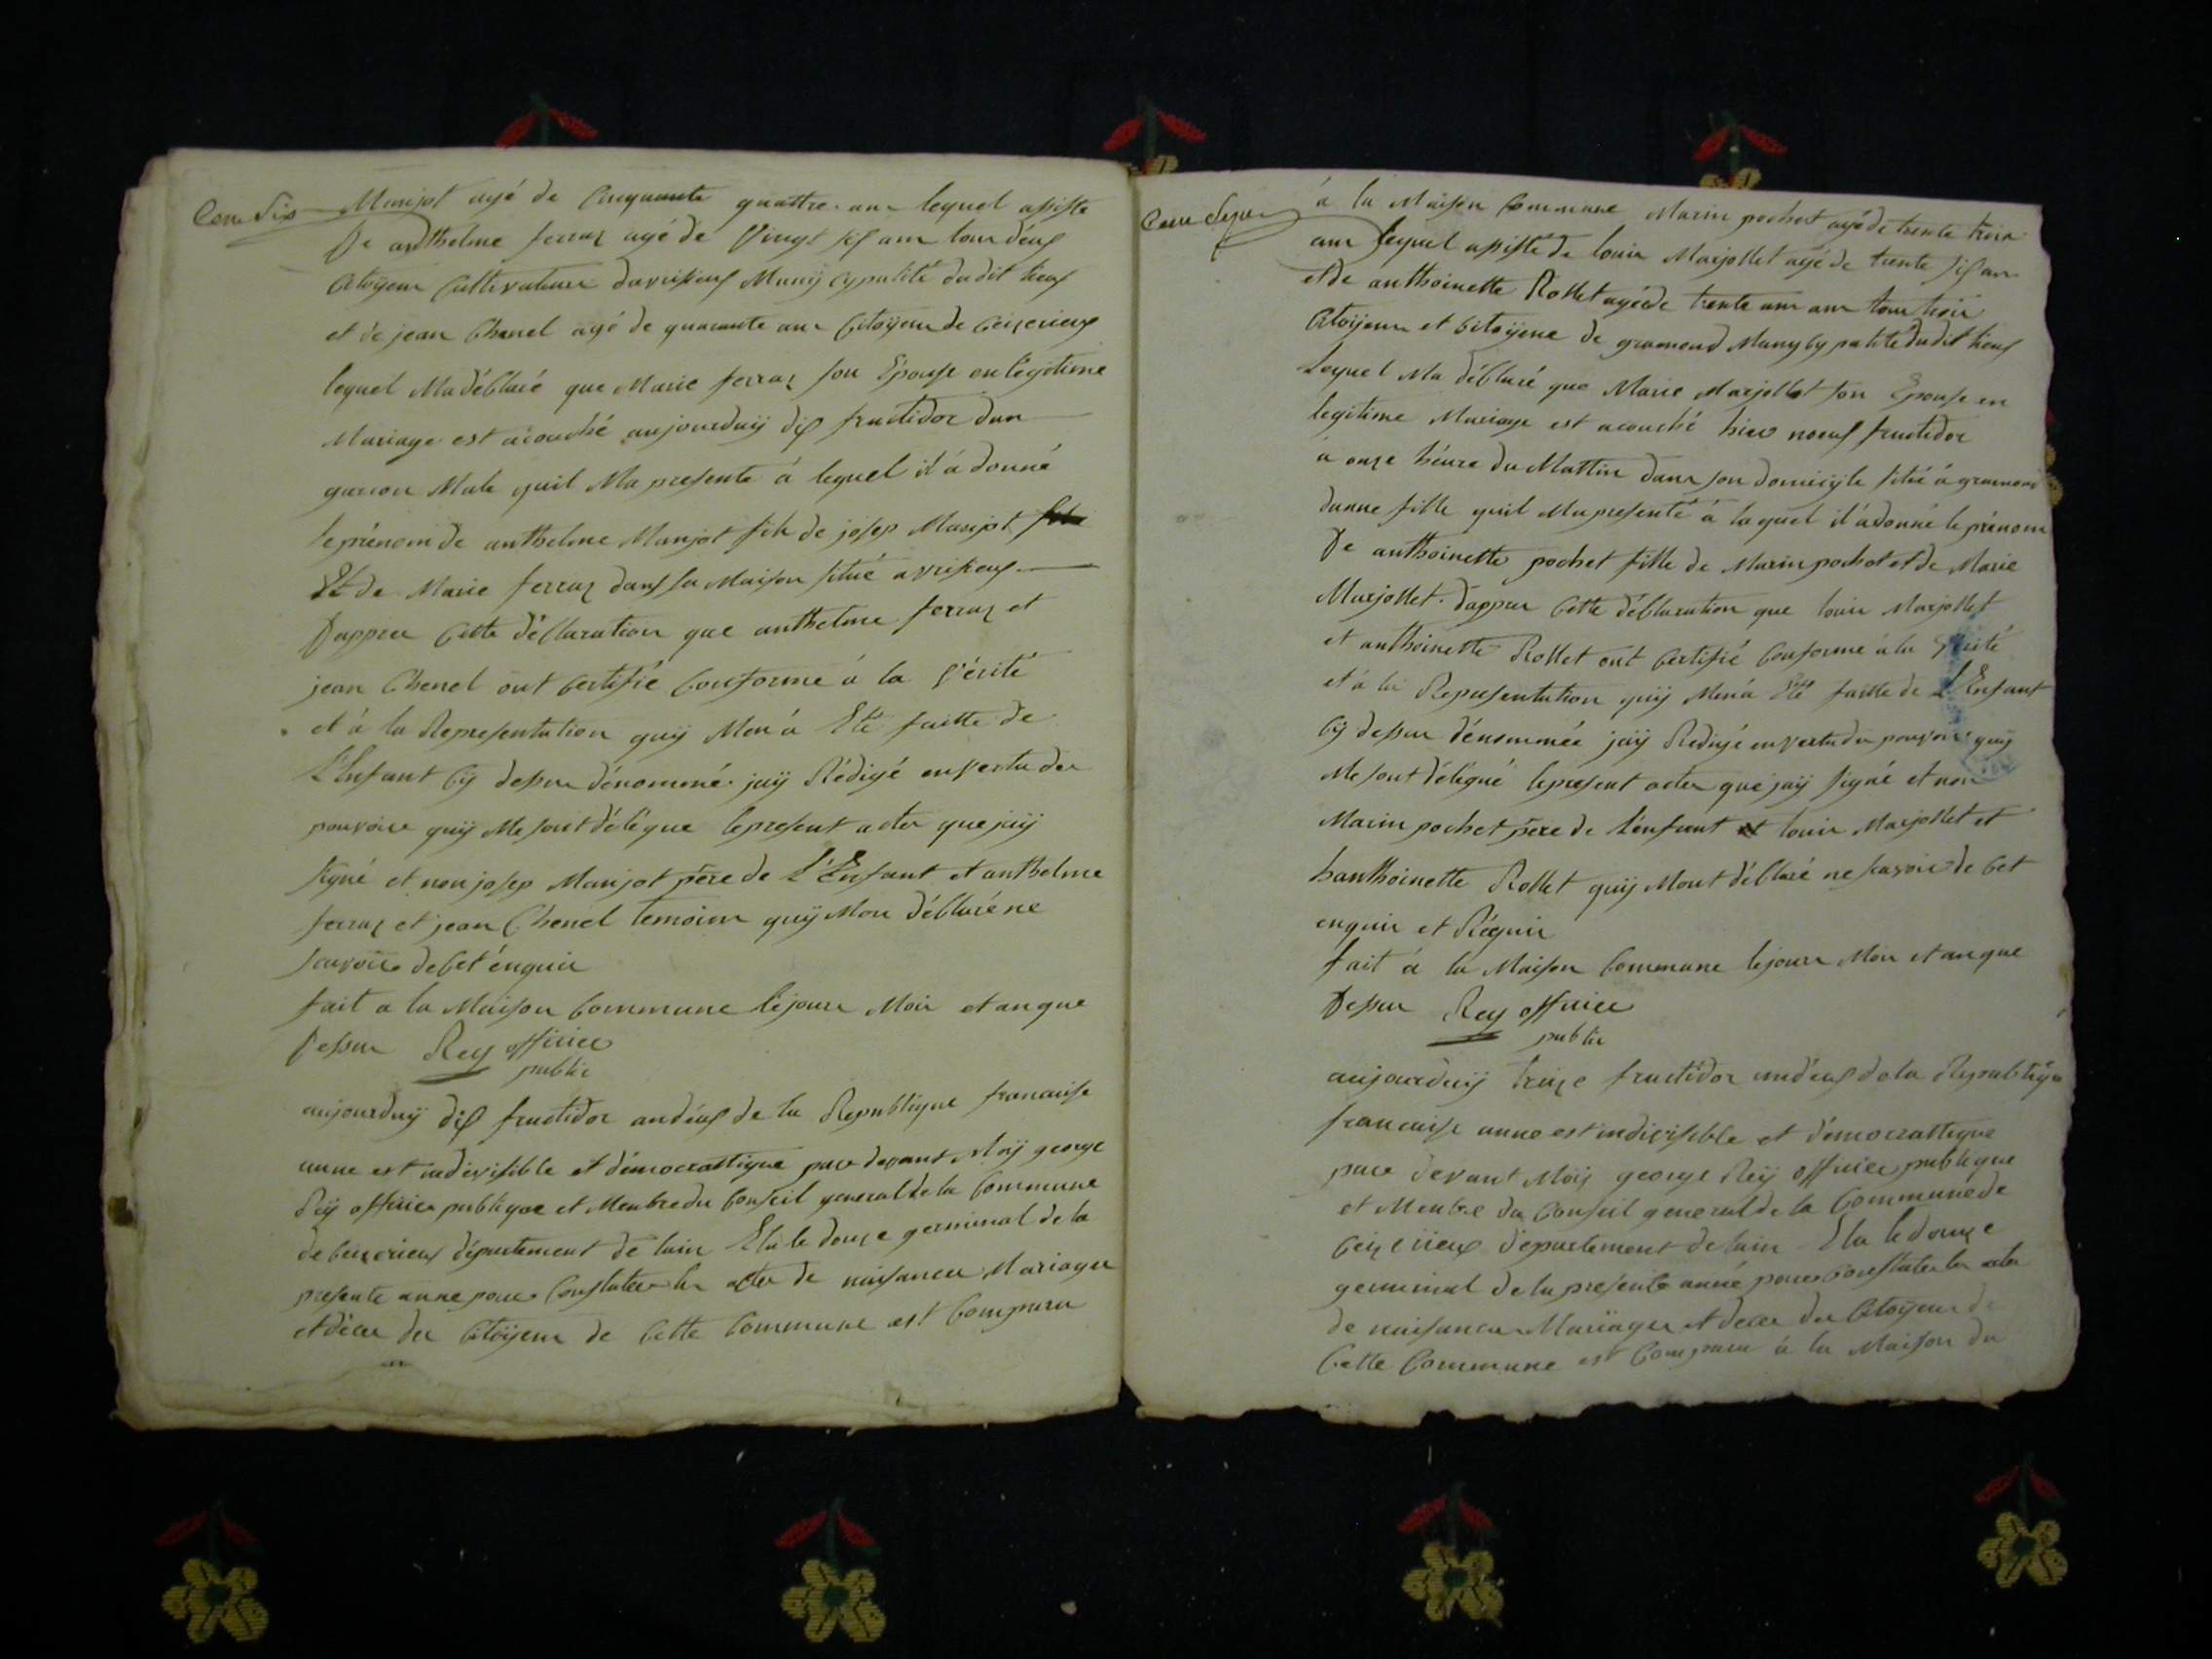 Cent Six
Marijot agé de Cinquante quattre ans lequel assiste
De anthelme ferraz agé de Vingt six ans tous deux
Citoÿens Cultivateurs davrissieux Munÿcypalité dudit lieux
et de jean Chenel agé de quarante ans Citoÿens de Ceizerieux
lequel Ma déblaré que Marie ferraz son Épouse en légitime
Mariage est acouché aujourduÿ dix fructidor dun
garcon Male quil Ma presente á lequel il á donné
le prénom de anthelme Marijot fils de josep Marijot
Et de Marie ferraz dans sa Maison situé avrissieux
Dappres Cette déclaration que anthelme ferraz et
jean Chenel ont Certifié Conforme á la Vérité
et á la Representation quÿ Men á Eté faitte de
L'Enfant Cÿ dessus dénommé jaÿ Rédigé en Vertu des
pouvoirs quÿ Me sont délégue le present actes que jaÿ
signé et non josep Marijot pére de L'Enfant et anthelme
ferraz et jean Chenel temoins quÿ Mon déblaré ne
scavoir de Cet énquis
fait a la Maison Commune le jours Mois et an que
Dessus Reÿ officier
public
aujourduÿ dix fructidor an deux de la Republique francaise
unne est indivisible et démocrattique pare devant Moÿ george
Reÿ officier publique et Membre du Conseil general de la Commune
de Ceizerieux département de lain Elu le douze germinal de la
presente anne pour Constater les actes de naissances Mariages
et déces des Citoÿens de Cette Commune est Comparu
Cent Sept
á la Maison Commune Marin pochet agé de trente trois
ans lequel assisté de louis Marjollet agé de trente six ans
et de anthoinette Rollet agée de trente ans ans tous trois
Citoÿens et Citoÿene de gramond Munycypalité dudit lieux
Lequel Ma déblaré que Marie Marjollet son Epouse en
legitime Mariage est acouché hier noeuf fructidor
á onze héure du Mattin dans son domicÿle situé á
dunne fille quil Ma presenté á la quel il á donné le prénom
De anthoinette pochet fille de Marin pochet et de Marie
Marjollet. Dappres Cette déblaration que louis Marjollet
et anthoinette Rollet ont Certifié Conforme á la Vérité
et á la Representation quÿ Men á Eté faitte de L'Enfant
Cÿ dessus dénommée jaÿ Redigé en vertu des pouvoirs quÿ
Me sont délégué le present actes que jaÿ signé et non
Marin pochet pére de L'enfant et louis Marjollet et
hanthoinette Rollet quÿ Mont déblaré ne scavoir de Cet
enquis et Réquis
fait á la Maison Commune le jours Mois et an que
Dessus Reÿ officier
public
aujourduÿ treize fructidor an deux de la Republique
francaise unne est indivisible et démocrattique
pare devant Moÿ george Reÿ officier publique
et Membre du Conseil general de la Commune de
Ceizerieux département de lain Elu le douze
germinal de la presente anné pour Constater les actes
de naissances Mariages et deces des Citoÿens de
Cette Commune est Comparu á la Maison du